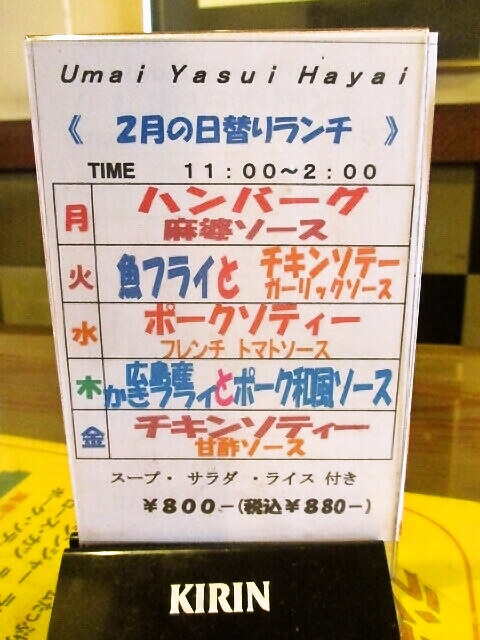 Umai Yasui Hayai
《 2月の日替りランチ 》
TIME 11:00～2:00
月 ハンバーグ
麻婆ソース
火 魚フライと チキンソテー
ガーリックソース
水 ポークソティー
フレンチ トマトソース
木 広島産
かきフライとポーク和風ソース
金 チキンソティー
甘酢ソース
スープ・ サラダ ・ライス 付き
￥800-(税込￥880-)
KIRIN